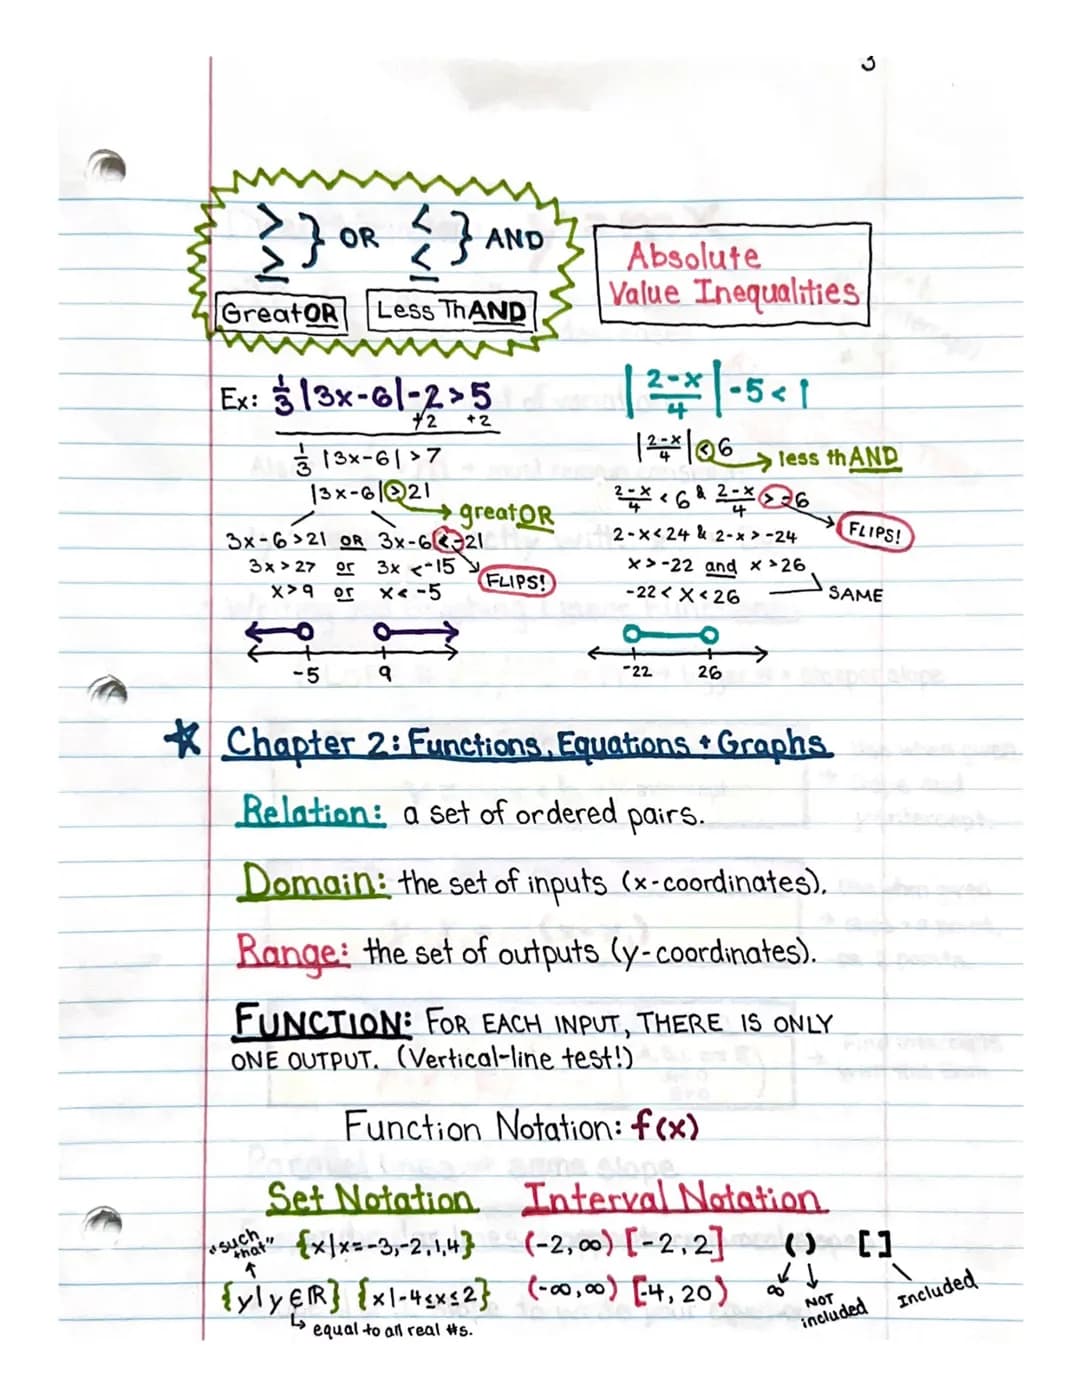 3
> ≥ } OR < ≤ } AND
GreatOR Less ThAND
Absolute
Value Inequalities
Ex: 1/3 |3x-6|-2>5
+2 +2
1/3 |3x-6|>7
|3x-6|>21
greatOR
3x-6>21 OR 3x-6<-21
3x>27 or 3x<-15
FLIPS!
x>9 or x<-5
-5 9
|2-x/4|-5<1
|2-x/4|<6
less thAND
2-x/4 <6 & 2-x/4 >-6
FLIPS!
2-x<24 & 2-x>-24
x>-22 and x>26
-22<x<26
SAME
-22 26
Chapter 2: Functions, Equations + Graphs
Relation: a set of ordered pairs.
Domain: the set of inputs (x-coordinates).
Range: the set of outputs (y-coordinates).
FUNCTION: FOR EACH INPUT, THERE IS ONLY
ONE OUTPUT. (Vertical-line test!)
Function Notation: f(x)
Set Notation Interval Notation
"such that" {x|x=-3,-2,1,4} (-2,∞) [-2,2] ( ) [ ]
{y|y∈ℝ} {x|-4≤x≤2} (-∞,∞) [-4,20) ∞ NOT included Included
equal to all real #s.